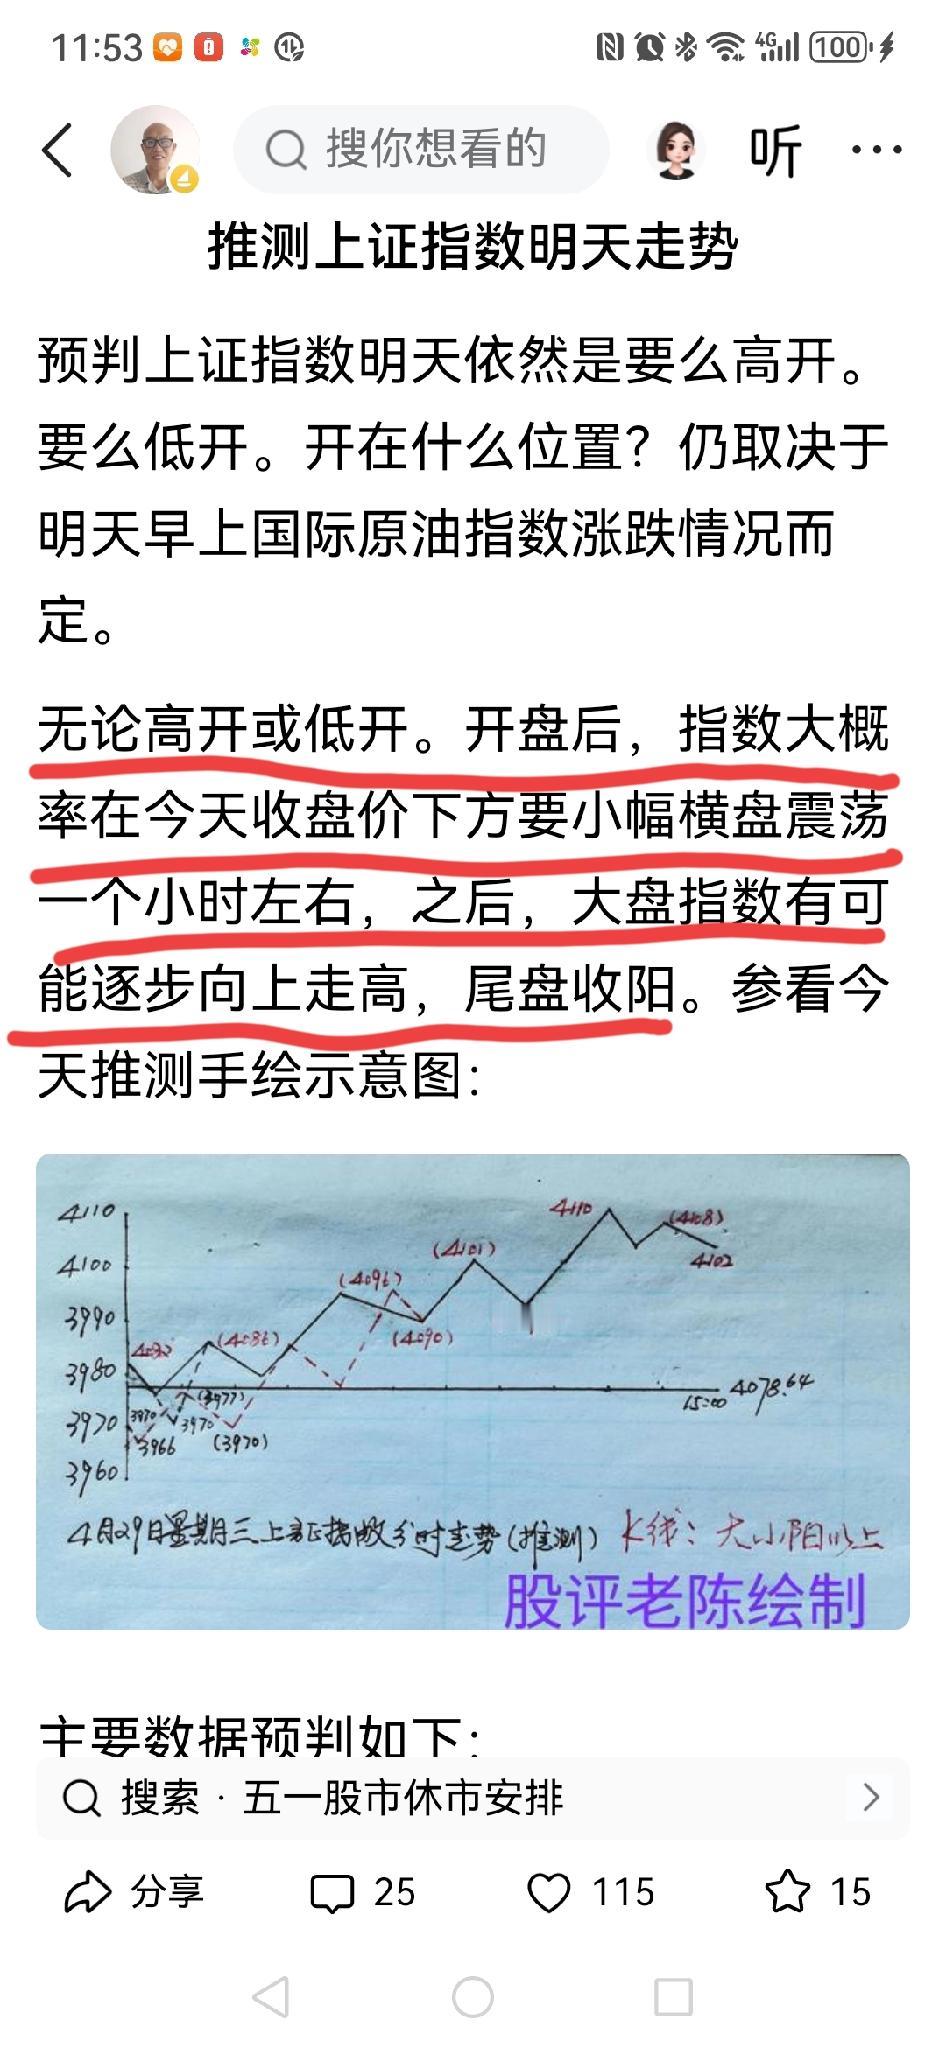 11:53
4G
100
搜你想看的
听
推测上证指数明天走势
预判上证指数明天依然是要么高开。
要么低开。开在什么位置？仍取决于
明天早上国际原油指数涨跌情况而
定。
无论高开或低开。开盘后，指数大概
率在今天收盘价下方要小幅横盘震荡
一个小时左右，之后，大盘指数有可
能逐步向上走高，尾盘收阳。参看今
天推测手绘示意图：
4110
4100
3990
3980
3970
3960
(4086)
(4096)
(4090)
(4101)
4110
(4108)
4102
(3977)
3970
3970
3966
(3970)
15:00
4078.64
4月29日星期三上证指数分时走势(推测)
K线：大小阳以上
股评老陈绘制
主要数据预判如下：
搜索 · 五一股市休市安排
分享
25
115
15